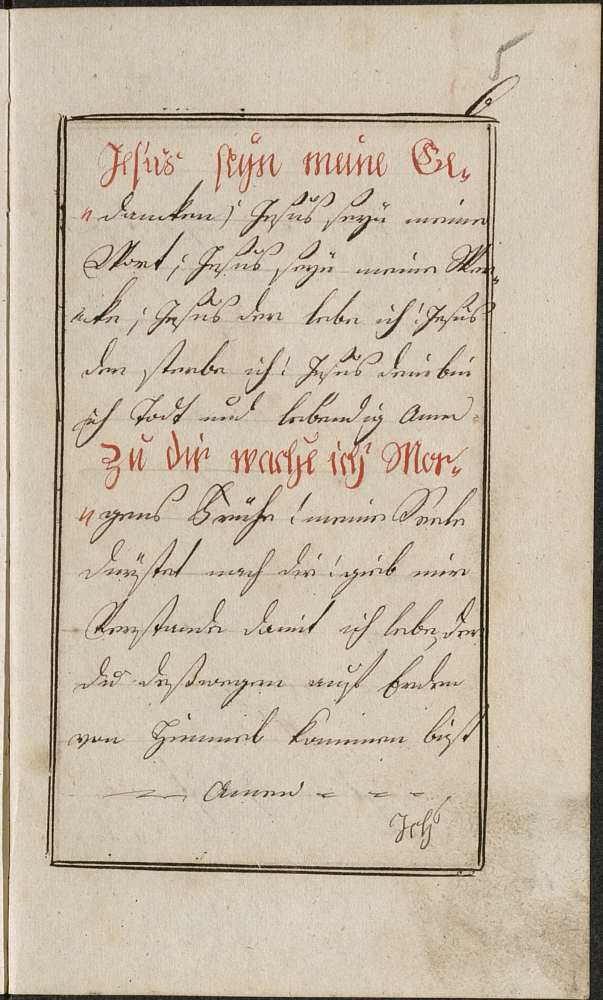 5
6
Jesus seÿn meine Ge„
„dancken; Jesus seÿn meine
Wort; Jesus seÿn meine Wer„
cke; Jesus der lebe ich! Jesus
der sterbe ich! Jesus dein bin
ich Todt und lebendig Amen
Zu dir wache ich Mor„
„gens Fruhe! meine Seele
dürstet nach dir! gieb mir
Verstande damit ich lebe, der
du deßwegen auf Erden
von Himmel kommen bist
Amen
Ich